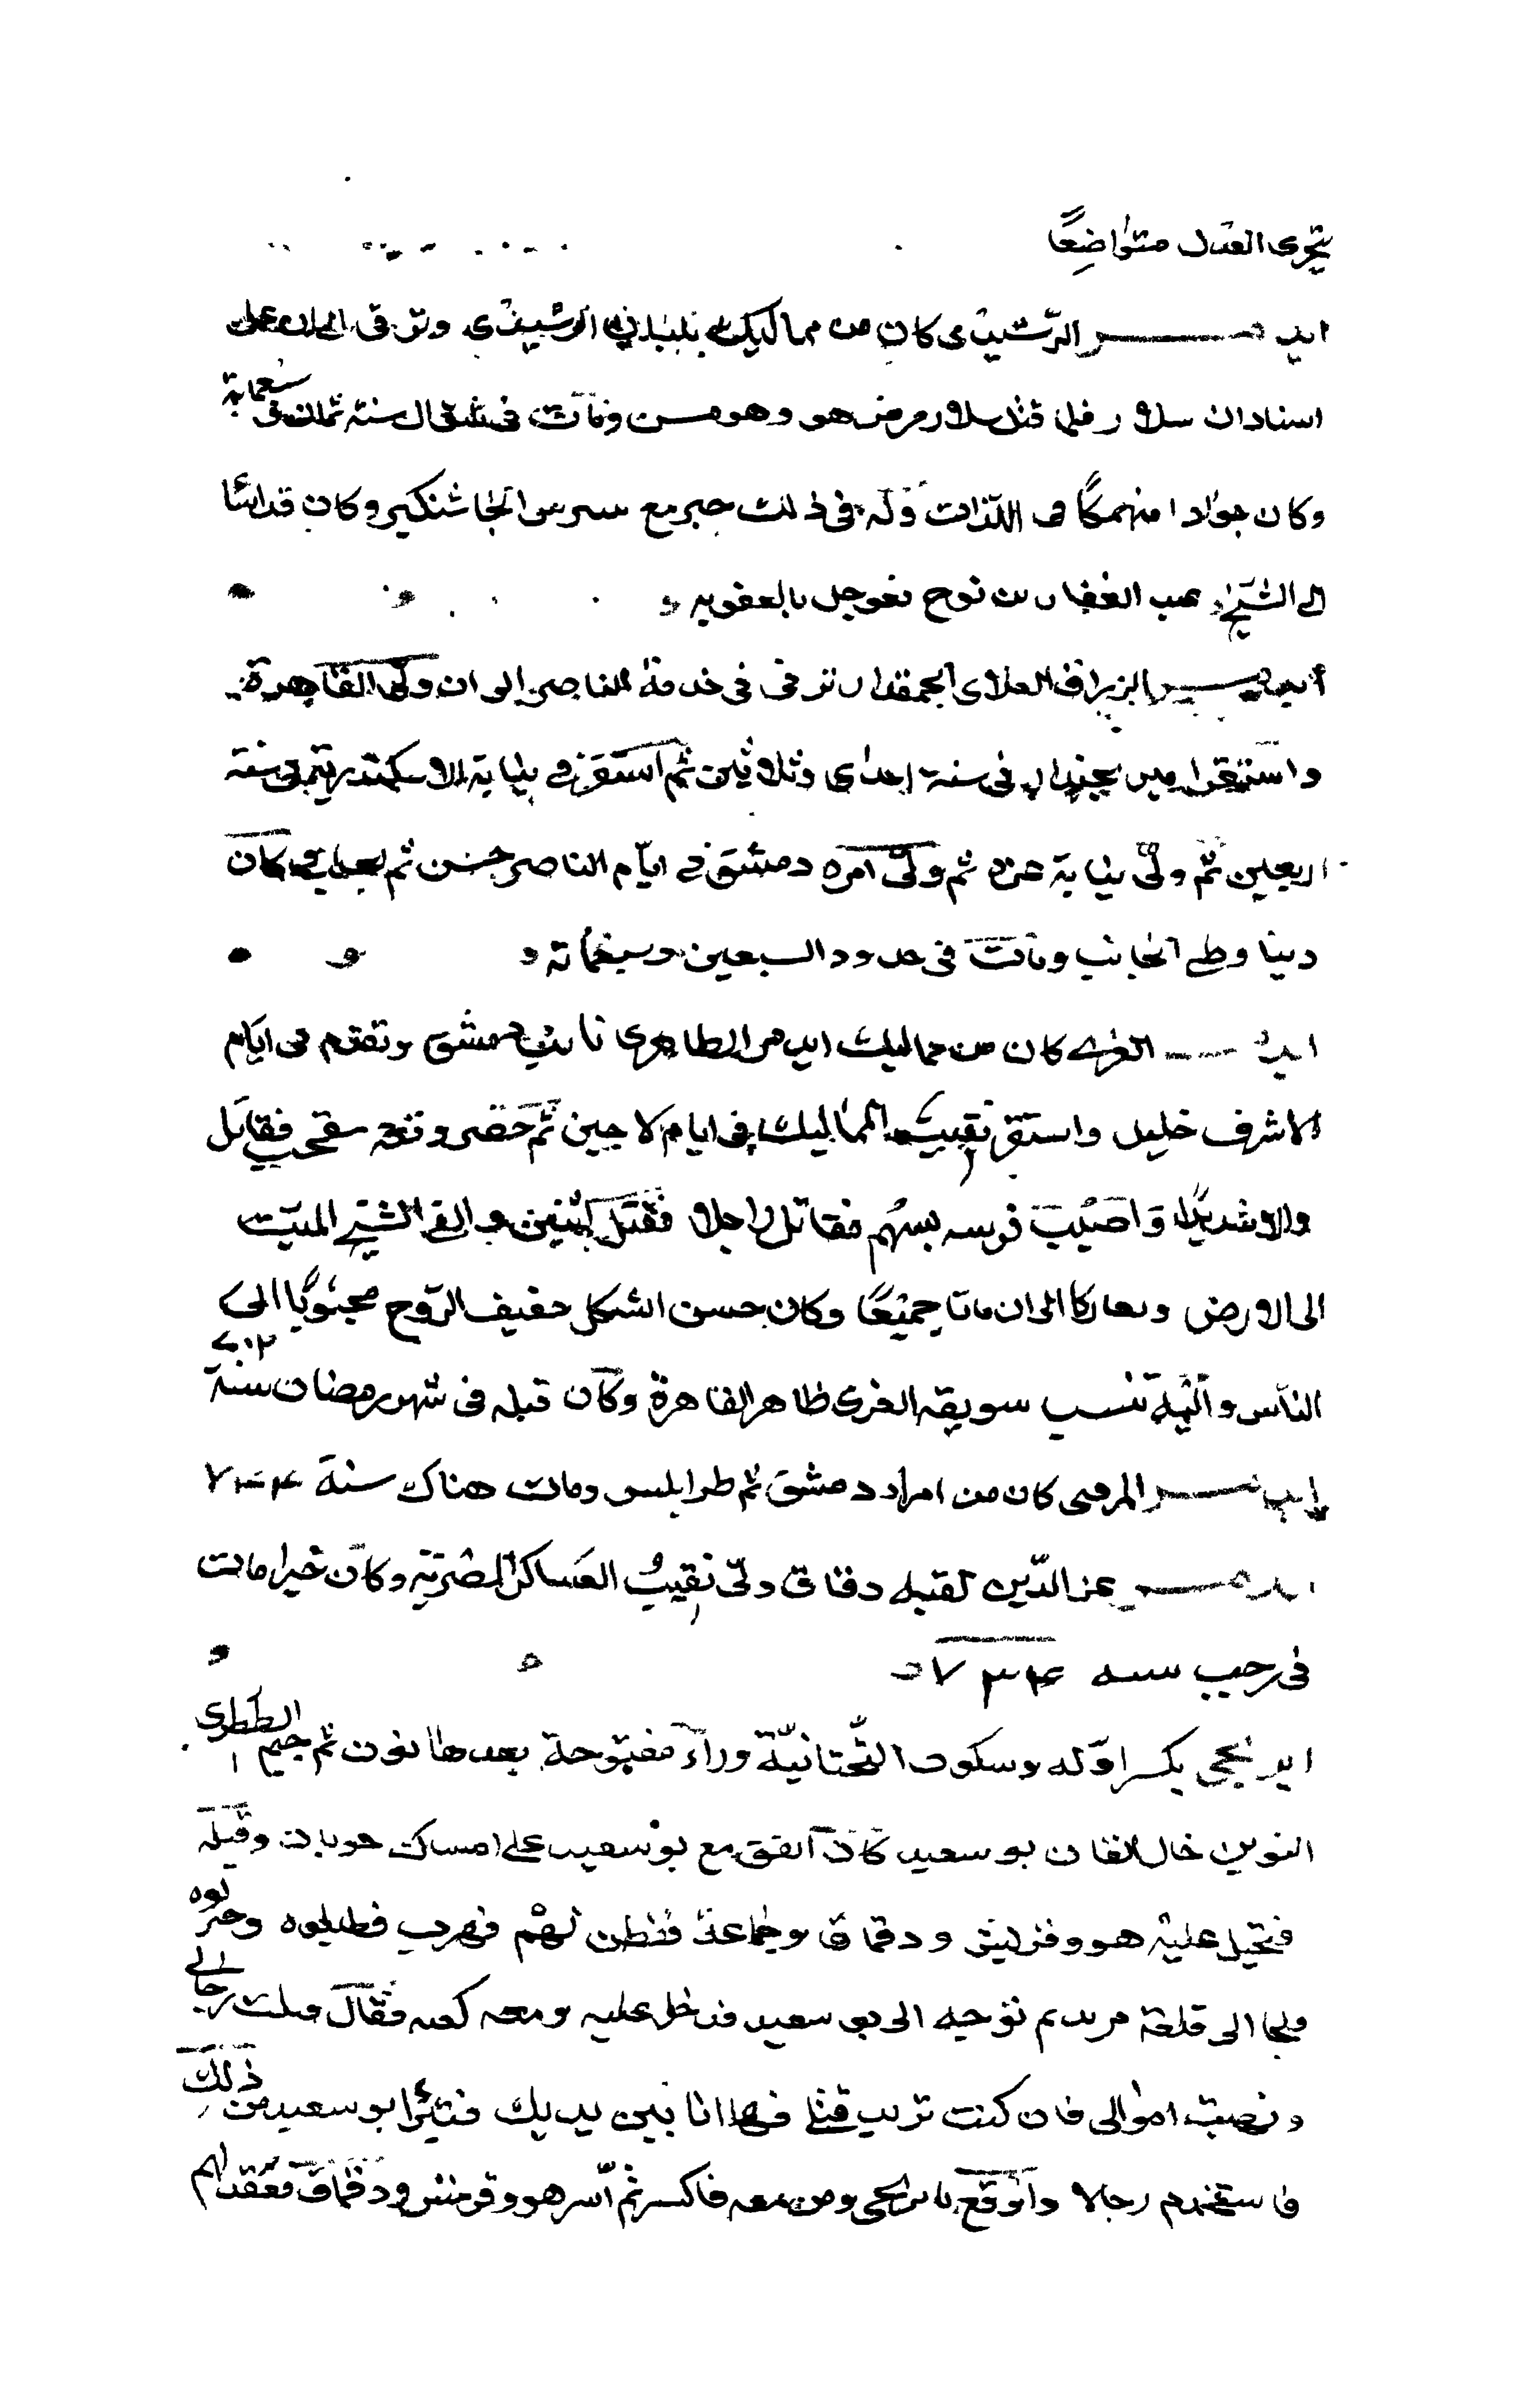 يتحرى العدل متواضعًا
ايدمر الرشيدى كان من مماليك بلبان الرشيدى وترقى الى ان عمل
استادار سلار فلما قتل سلار مرض هو وهو مسن ومات فى شوال سنة ثمان وسبعماية
وكان جوادا منهمكًا فى اللذات وله فى ذلك خبر مع بيبرس الجاشنكير وكان قد اسا
الى الشيخ عبد الغفار بن نوح فعوجل بالعقوبه
أيدمر الزراق العلاى الجمقدار ترقى فى خدمة الناصر الى ان ولى القاهرة
واستقر امير جندار فى سنة احدى وثلاثين ثم استقر فى نيابة الاسكندرية فى سنة
اربعين ثم ولى نيابة غزه ثم ولى امره دمشق فى ايام الناصر حسن ثم بحلب وكان
دينا وطى الجانب ومات فى حدود السبعين وسبعماتة
ايد العزى كان من مماليك ايدمر الظاهرى نائب دمشق وتقدم فى ايام
الاشرف خليل واستقر نقيب المماليك فى ايام لاجين ثم حضر وقعه شقحب فقاتل
والا شديدا واصيب فرسه بسهم فقاتل راجلا فقتل والقى الميت
الى الارض وتعاركا الى ان ماتا جميعًا وكان حسن الشكل خفيف الروح محبوبًا الى
الناس واليه تنسب سويقه العزى ظاهر القاهرة وكان قبله فى شهر رمضان سنة ٧٠٢
ايدمر المرقبى كان من امراء دمشق ثم طرابلس ومات هناك سنة ٧٣٤
ايدمر عز الدين لقبه دقاق ولى نقيب العساكر المصرية وكان خيرا مات
فى رجب سنه ٧٣٤
ايرنجى بكسر اوله وسكون التحتانية وراء مفتوحة بعدها نون ثم جيم الططرى
النوين خال القان بو سعيد كان اتفق مع بو سعيد على امساك جوبان وقتله
فتحيل عليه هو وقرمشى ودقماق وجماعة ففطن لهم فهرب فطلبوه وحر بوه
فلجا الى قلعة مرند ثم توجه الى بو سعيد فدخل عليه ومعه كفنه فقال قتلت رجالى
ونهبت اموالى فان كنت تريد قتلى فها انا بين يديك فتبرأ بو سعيد من ذلك
فاستخدم رجالا واوقع بايرنجى ومن معه فانكسر ثم اسر هو وقرمشى ودقماق فعقد لهم